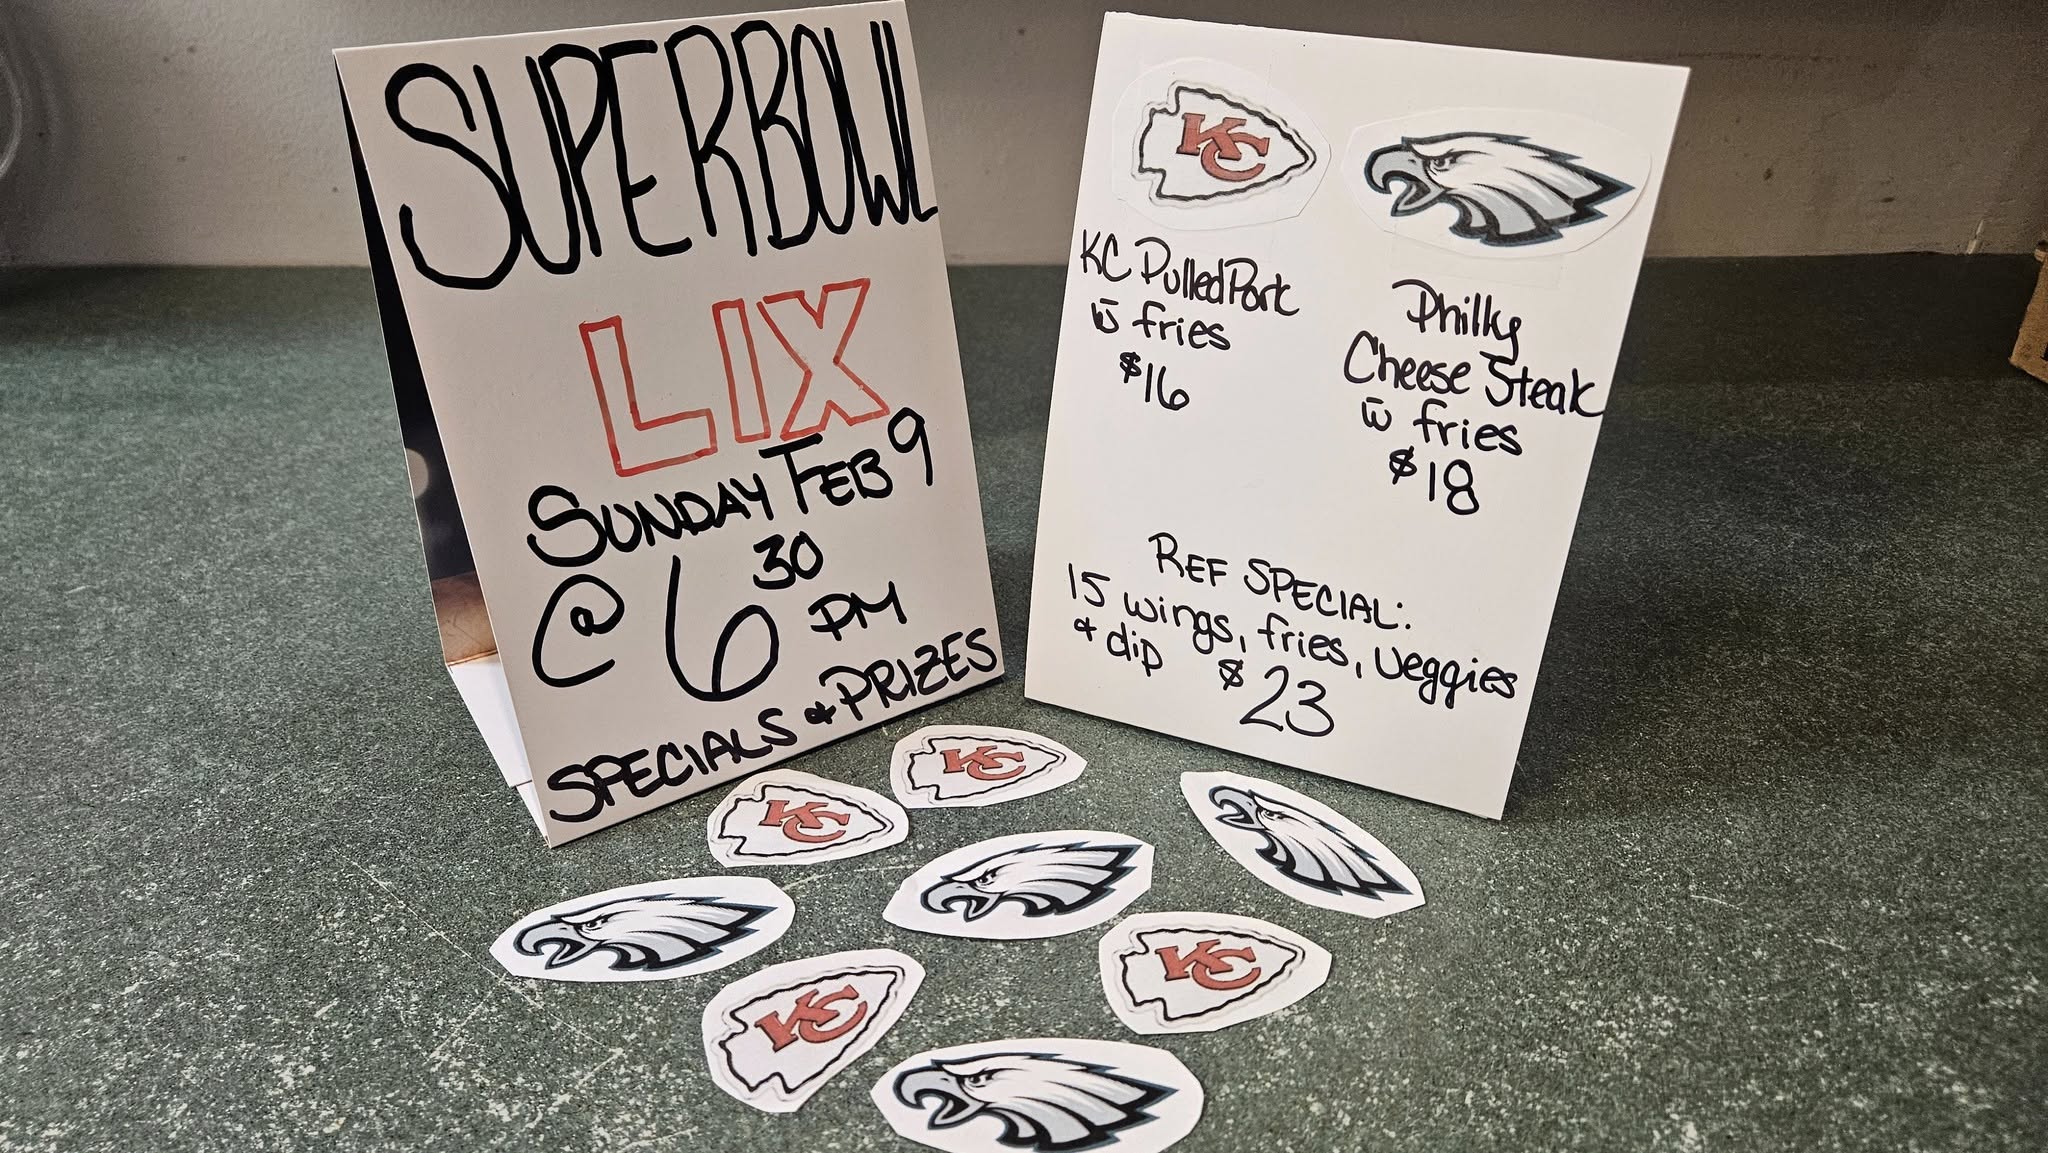 SUPERBOWL
LIX
SUNDAY FEB 9
@ 6 30 PM
SPECIALS & PRIZES
KC
KC Pulled Pork
w̄ fries
$16
Philly
Cheese Steak
w̄ fries
$18
REF SPECIAL:
15 wings, fries, veggies
& dip $23
KC
KC
KC
KC